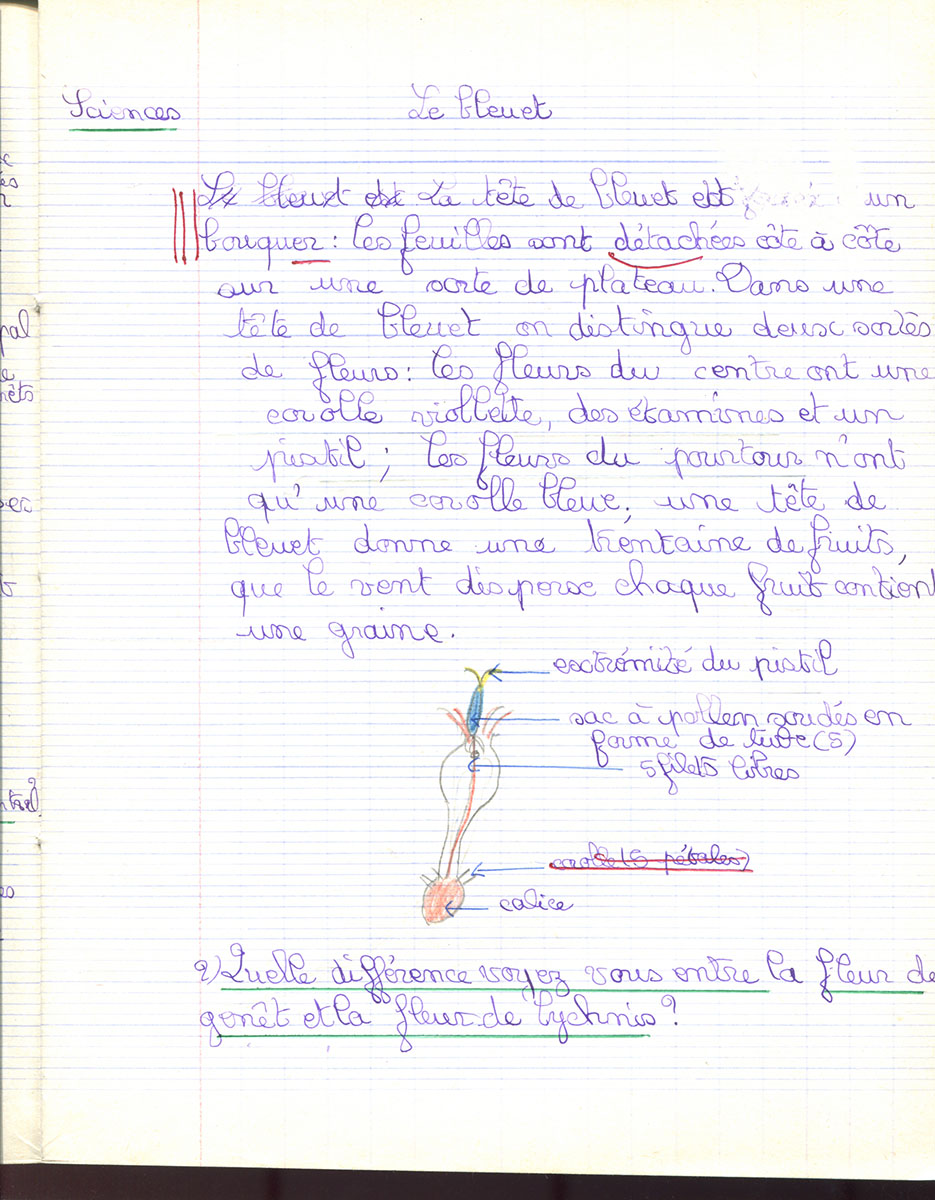 Sciences
Le bleuet
Le bleuet est La tête de bleuet est un
bouquer : les feuilles sont détachées côte à côte
sur une sorte de plateau. Dans une
tête de bleuet on distingue deux sortes
de fleurs : les fleurs du centre ont une
corolle viollette, des étamines et un
pistil ; les fleurs du pourtour n'ont
qu'une corolle bleue, une tête de
bleuet donne une trentaine de fruits,
que le vent disperse chaque fruit contient
une graine.
extrémité du pistil
sac à pollem soudés en
forme de tube (5)
5 filets libres
corolle (5 pétales)
calice
2) Quelle différence voyez vous entre la fleur de
genêt et la fleur de lychnis ?